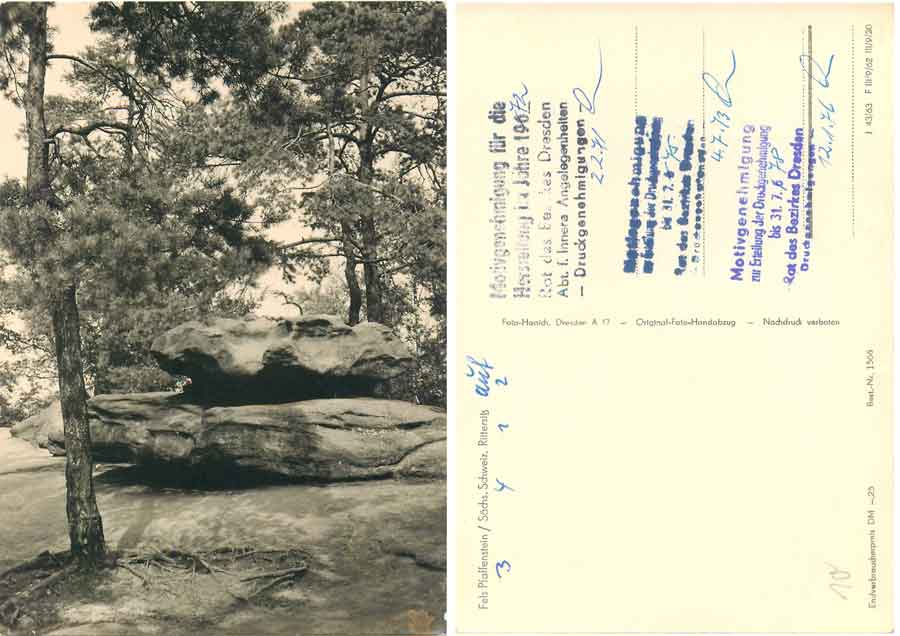 Motivgenehmigung für die
Herstellung im Jahre 1972
Rat des Bezirkes Dresden
Abt. f. Innere Angelegenheiten
— Druckgenehmigungen —
2.2.71
Motivgenehmigung
zur Erteilung der Druckgenehmigung
bis 31. 7. 6 75
Rat des Bezirkes Dresden
Druckgenehmigungen
4.7.73
Motivgenehmigung
zur Erteilung der Druckgenehmigung
bis 31. 7. 6 78
Rat des Bezirkes Dresden
Druckgenehmigungen
12.1.76
J 43/63 F III/9/62 III/9/20
Foto-Hanich, Dresden A 17 — Original-Foto-Handabzug — Nachdruck verboten
Fels Pfaffenstein / Sächs. Schweiz, Rittersitz auf
3 4 1 2
Best.-Nr. 1566
Endverbraucherpreis DM -.25
10